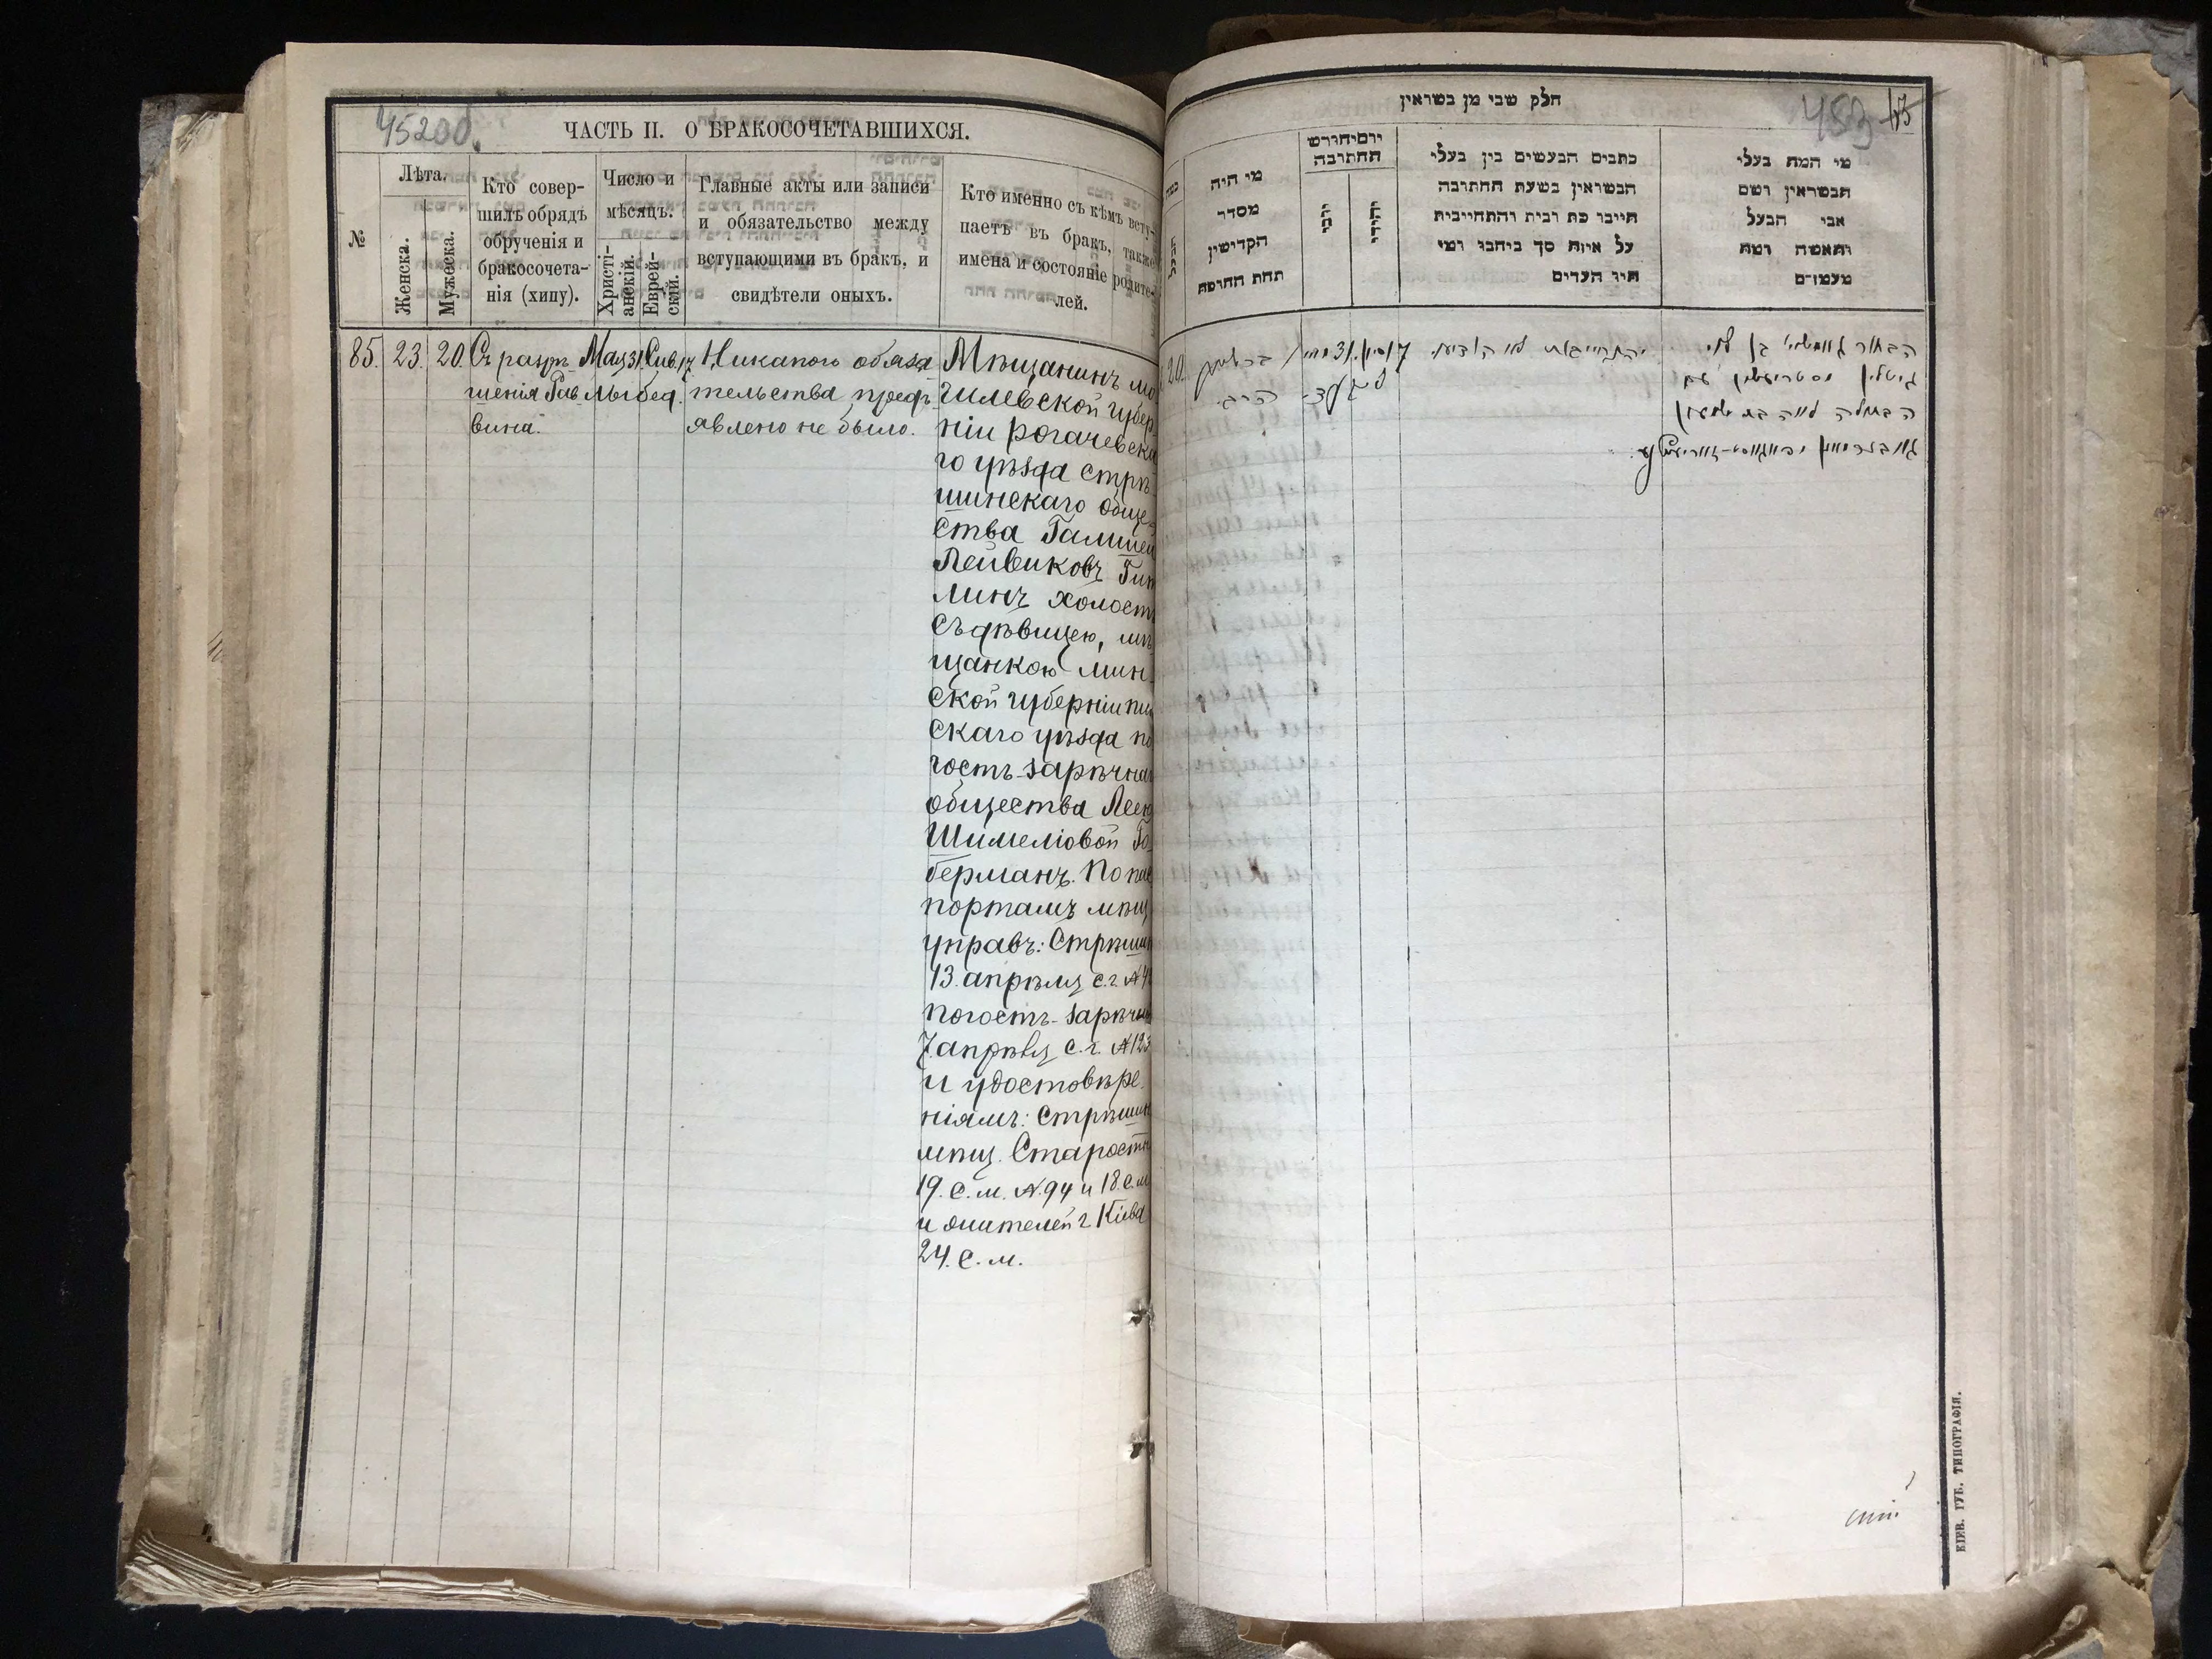 45200.
ЧАСТЬ II. О БРАКОСОЧЕТАВШИХСЯ.
№
Лѣта.
Женска.
Мужеска.
Кто совер-
шилъ обрядъ
обрученія и
бракосочета-
нія (хипу).
Число и
мѣсяцъ.
Христі-
анскій.
Еврей-
скій.
Главные акты или записи
и обязательство между
вступающими въ бракъ, и
свидѣтели оныхъ.
Кто именно съ кѣмъ всту-
паетъ въ бракъ, также
имена и состояніе родите-
лей.
85. 23. 20.
Съ разрѣ
шенія Рав
вина.
Мая 31
Сив. 17
Лыбед.
Никакого обяза
тельства предъ
явлено не было.
Мѣщанинъ мо
гилевской губер
ніи рогачевска
го уѣзда стрѣ
шинскаго обще
ства Галшей
Лейвиковъ Гит
линъ холост
съ дѣвицею, мѣ
щанкою мин
ской губерніи пи
скаго уѣзда по
гостъ-зарѣчна
общества Леею
Шимеліовой Го
берманъ. По пас
портамъ мѣщ
управъ: Стрѣшин
13. апрѣля с.г. №
погостъ-зарѣчн
7 апрѣля с.г. №123
и удостовѣре
ніямъ: Стрѣшин
мѣщ. Старосты
19. с.м. №.94 и 18. с.м
и жителей г Кіева
24. с.м.
חלק שבי מן בשראין
453
מי היה
מסדר
הקדישין
תחת החופה
יום וחורש
החתובה
כתבים הנעשים בין בעלי
הנשואין בשעת החתובה
חייבו כת רבית והתחייבות
על איזה סך ביחבו ומי
היו העדים
מי המה בעלי
הנשואין ושם
אבי הבעל
והאשה ומה
מעמדם
20.
ברשיון
הרב.
31 מאי
17 סיון
והתחייבות לא הודיעו.
הבחור גאלשיי בן לוי
גיטלין מסטרעשין עם
הבתולה לאה בת שמעון
גאבערמאן מפאגאסט-זארעטשנע
КІЕВ. ГУБ. ТИПОГРАФІЯ.